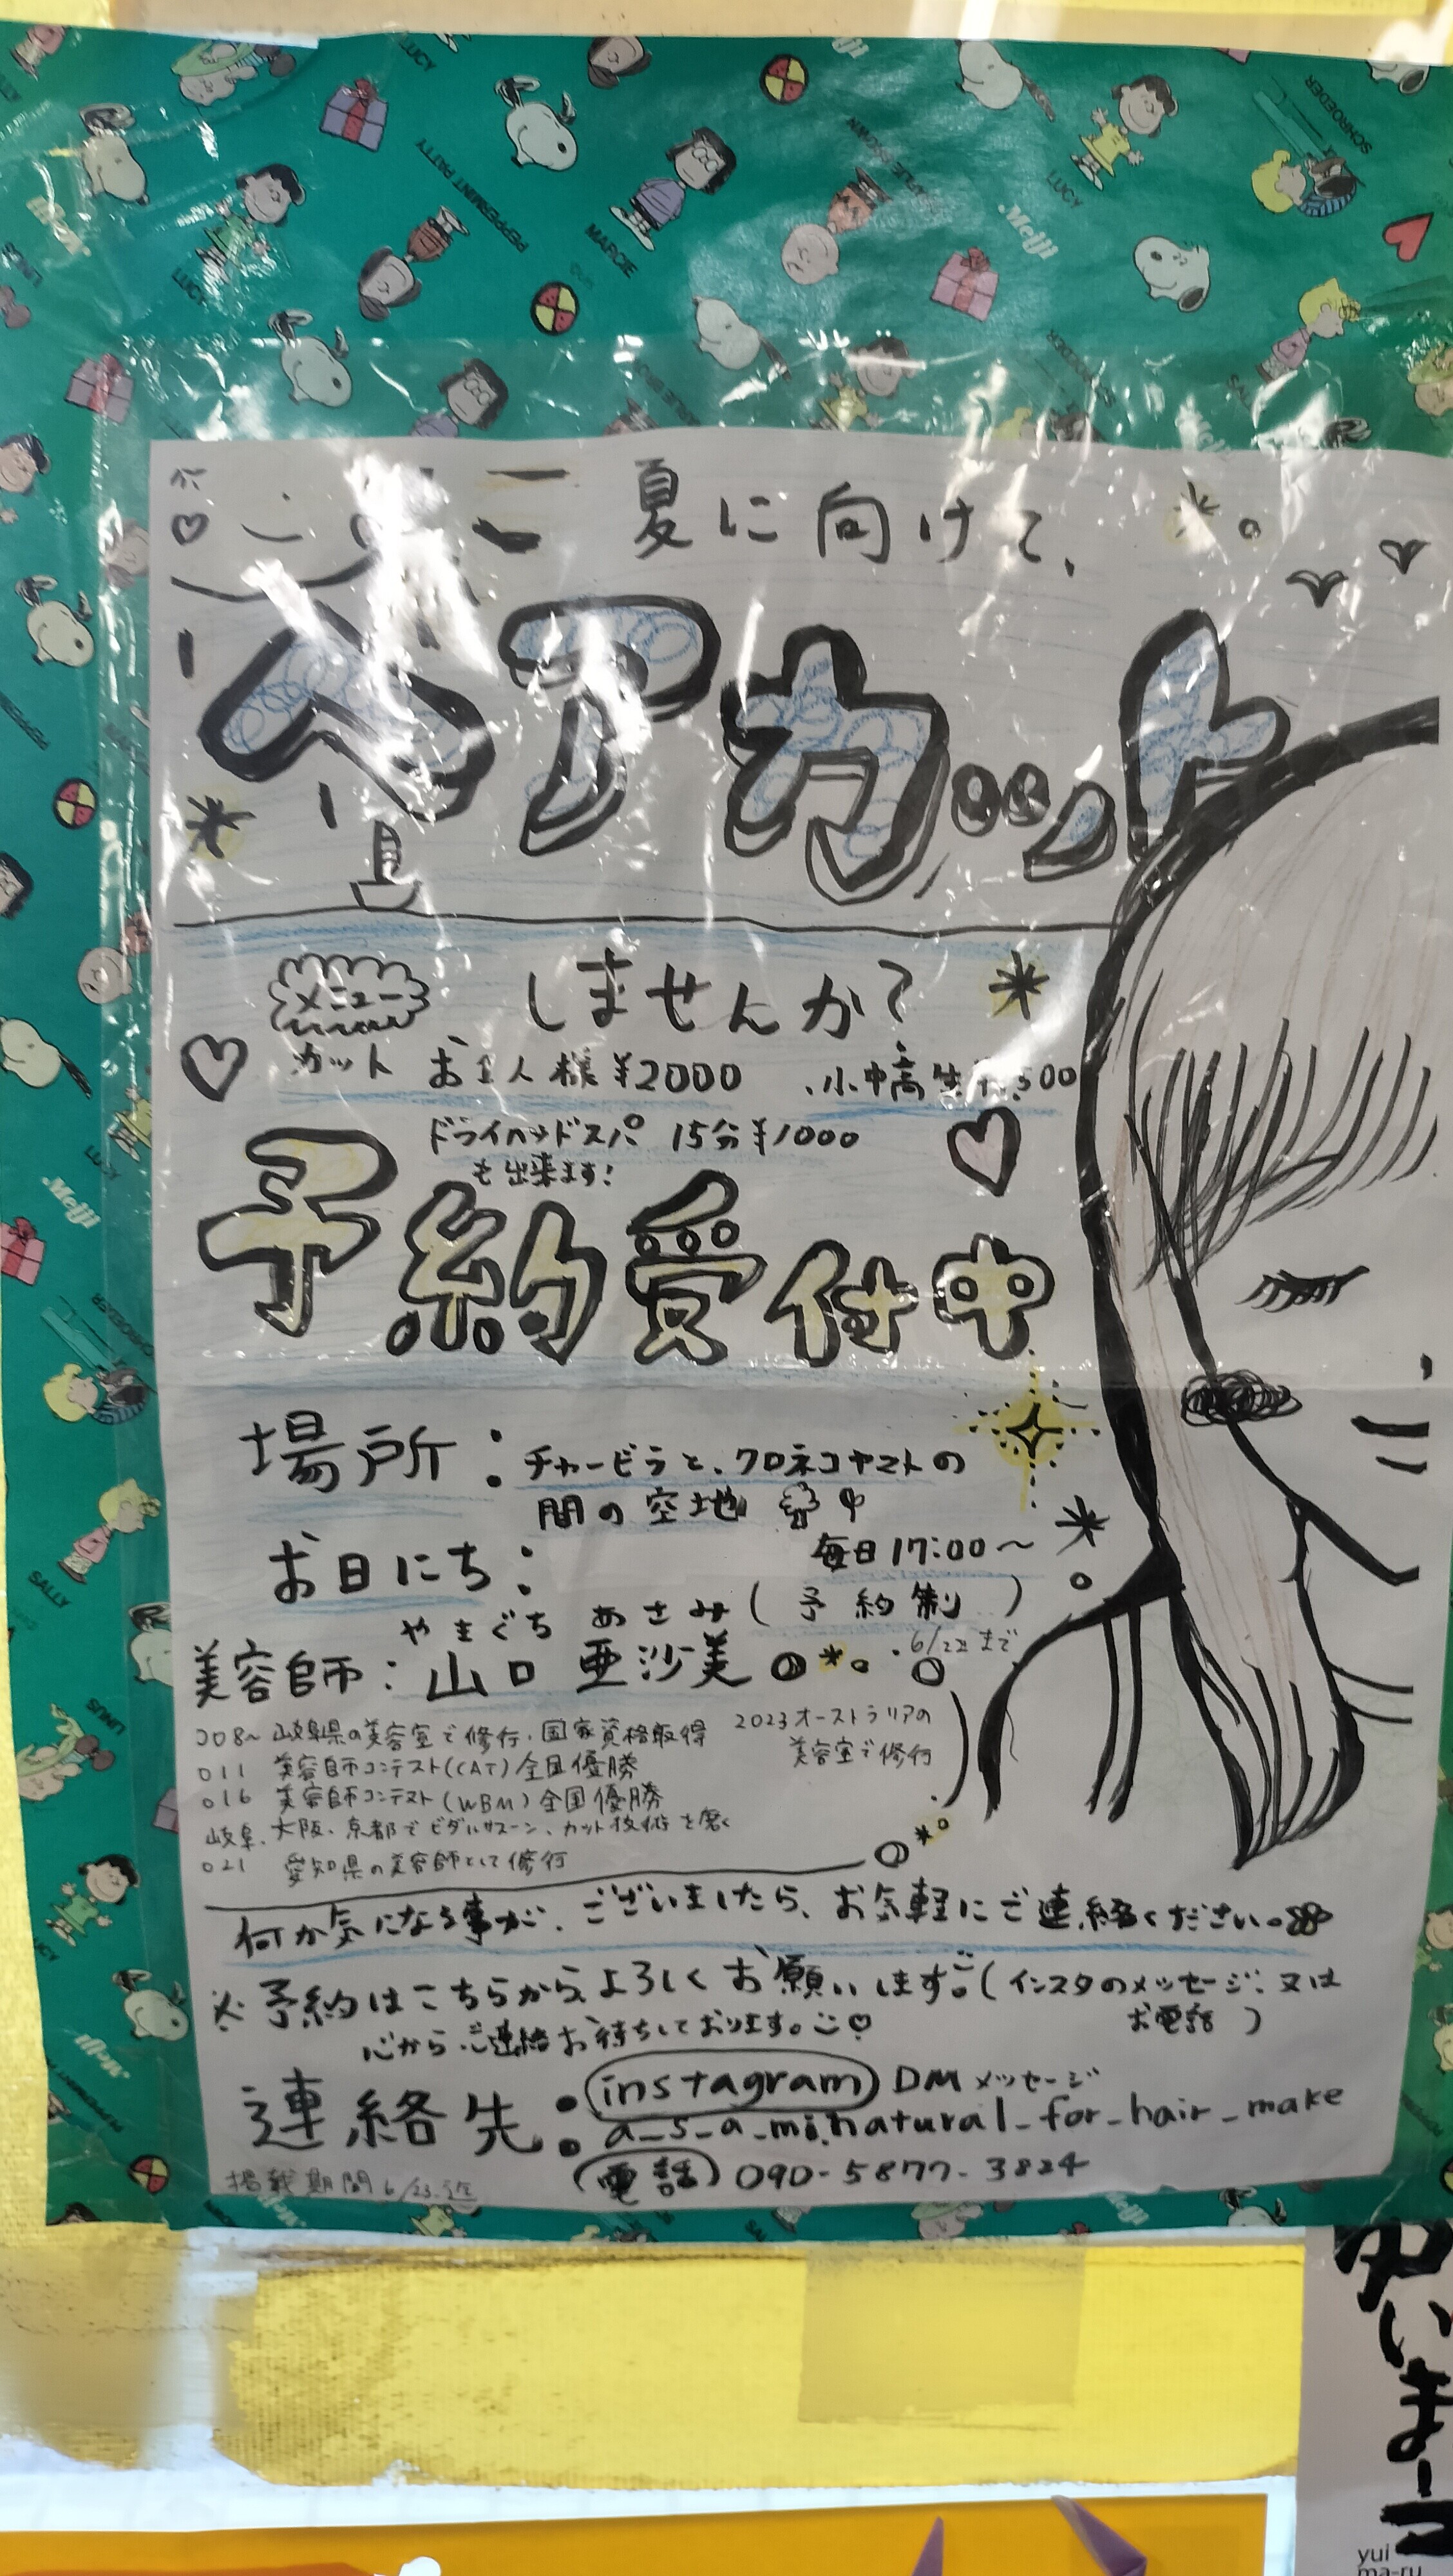 夏に向けて、
ヘアカット
メニュー
しませんか?
カット お1人様 ¥2000
小中高生
ドライヘッドスパ 15分¥1000
も出来ます!
予約受付中
場所:チャービラと、クロネコヤマトの
間の空地
お日にち:毎日17:00〜
(予約制)
6/22まで
やまぐち あさみ
美容師:山口 亜沙美
008〜 岐阜県の美容室で修行・国家資格取得
011 美容師コンテスト(CAT)全国優勝
016 美容師コンテスト(WBM)全国優勝
岐阜、大阪、京都でビダルサスーン、カット技術を磨く
021 愛知県の美容師として修行
2023 オーストラリアの
美容室で修行
何か気になる事が、ございましたら、お気軽にご連絡ください。
※予約はこちらから、よろしくお願いします。(インスタのメッセージ、又は
お電話)
心からご連絡お待ちしております。
連絡先:instagram DMメッセージ
a_s_a_mi.natural_for_hair_make
電話 090-5877-3824
掲載期間 6/23迄
PEPPERMINT PATTY
MARCIE
LUCY
SCHROEDER
Meiji
SALLY
LINUS
ゆいまーる
yui
ma-ru